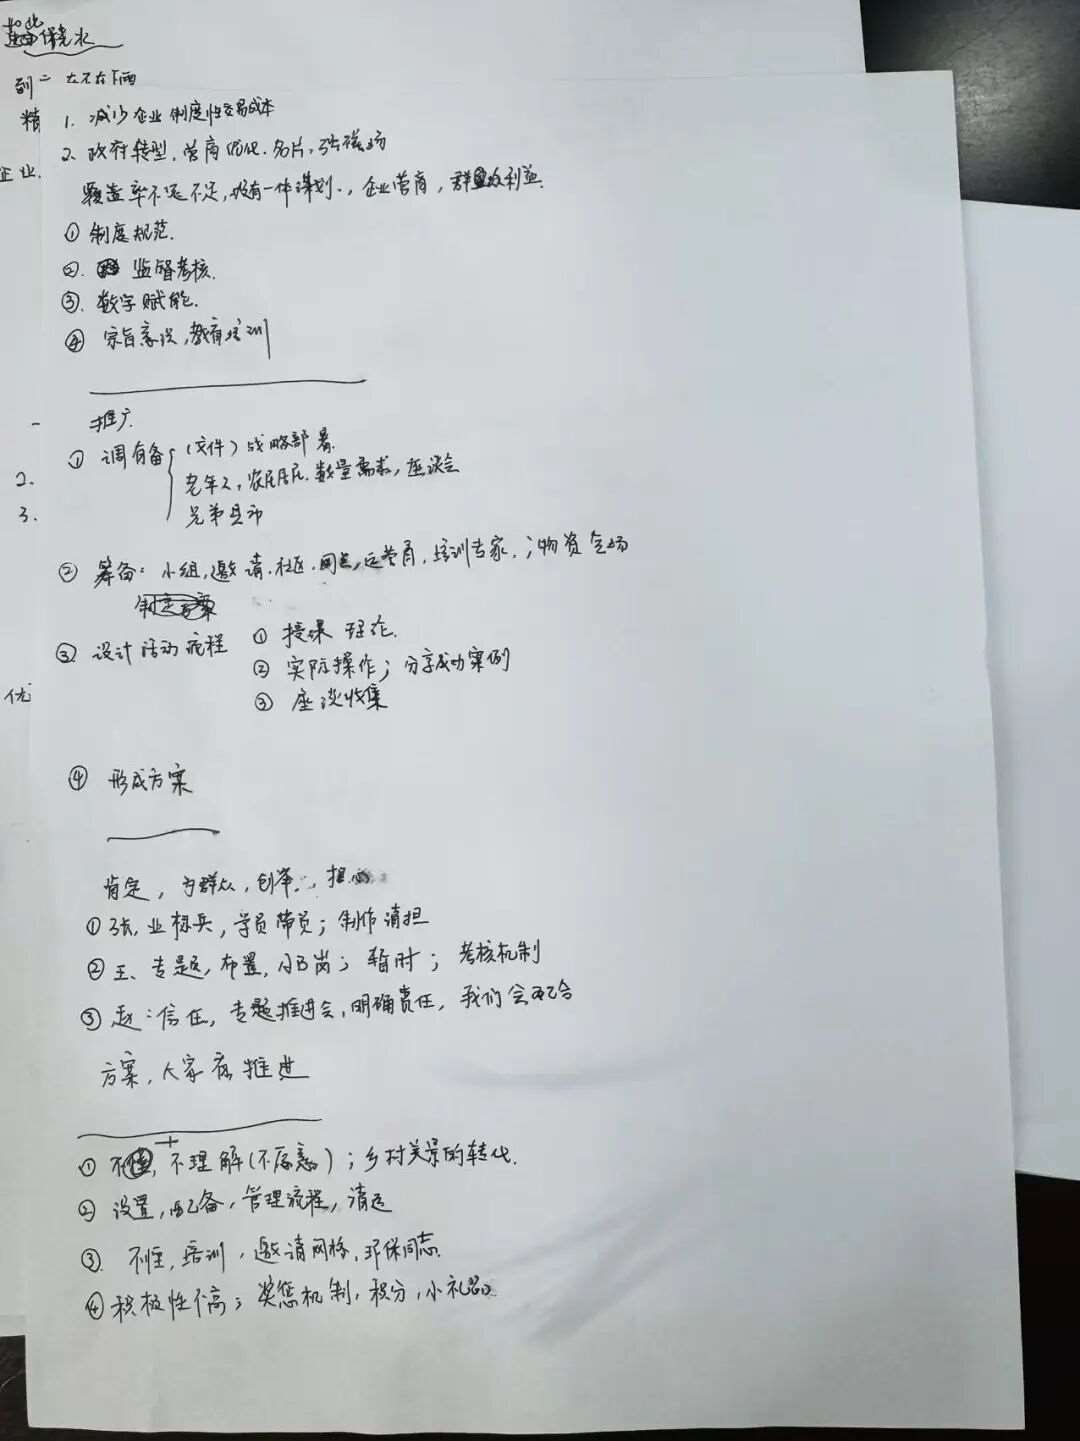 保老水
到二 大不在下西
精 1. 减少企业制度性交易成本
2. 政府转型,营商优化.名片,强磁场
企业.
覆盖率不远不足,没有一体谋划.,企业营商,群众利益.
① 制度规范.
②. 监督考核.
③. 数字赋能.
④ 宗旨意识,教育培训
推广
① 调有备 (文件)战略部署.
2.
老年人,农居居民.数量需求,座谈会
3.
兄弟县市
② 筹备:小组,邀请.社区.网点,运营商,培训专家,;物资会场
制定方案
③ 设计活动流程 ① 授课 理论.
② 实际操作;分享成功案例
优
③ 座谈收集
④ 形成方案
肯定,为群众,创净.,担心
① 张.业标兵,学员带员;制作清担
② 王、专题,布置,AB岗;暂时;考核机制
③ 赵:信任,专题推进会,明确责任,我们会配合
方案,大家 推进
① 不理解(不愿意);乡村关景的转化.
② 设置,配备,管理流程,清运
③. 不住,培训,邀请网格,环保同志.
④ 积极性不高;奖惩机制,积分,小礼品